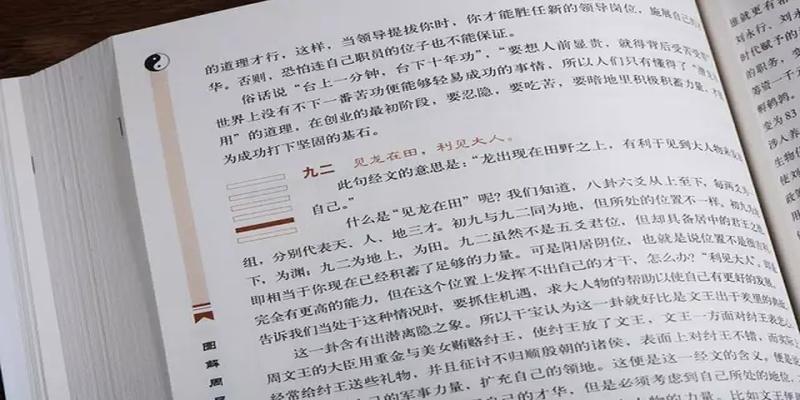 的道理才行，这样，当领导提拔你时，你才能胜任新的领导岗位，施展自己的
华。否则，恐怕连自己职员的位子也不能保证。
俗话说“台上一分钟，台下十年功”，“要想人前显贵，就得背后受苦受
世界上没有不下一番苦功便能够轻易成功的事情，所以人们只有懂得了“潜龙
用”的道理，在创业的最初阶段，要忍隐，要吃苦，要暗地里积极积蓄力量，
为成功打下坚固的基石。
九二 见龙在田，利见大人。
此句经文的意思是：“龙出现在田野之上，有利于见到大人物来
自己。”
什么是“见龙在田”呢？我们知道，八卦六爻从上至下，每两爻为
组，分别代表天、人、地三才。初九与九二同为地，但所处的位置不一样。初九为
下，为渊；九二为地上，为田。九二虽然不是五爻君位，但却具备居中的君王之
即相当于你现在已经积蓄了足够的力量。可是阳居阴位，也就是说位置不是很
完全有更高的能力，但在这个位置上发挥不出自己的才干，怎么办？“利见大人”，
告诉我们当处于这种情况时，要抓住机遇，求大人物的帮助以使自己有更好的发展。
这一卦含有出潜离隐之象。所以干宝认为这一卦就好比是文王出于羑里的
周文王的大臣用重金与美女贿赂纣王，使纣王放了文王，文王一方面对纣王表
经常给纣王送些礼物，并且征讨不归顺殷朝的诸侯，表面上对纣王不错，而实
自己的军事力量，扩充自己的领地。这便是这一经文的含义。
自己的才华，但是必须考虑到自己所处的地位，
人物的力量。比如文王便
图解周易
谁就更有
刘永行、刘永
时代赋予的
的职务，变
等资一千
鹌鹑。
变为 83
涉人养
生物
使刘
政策
用